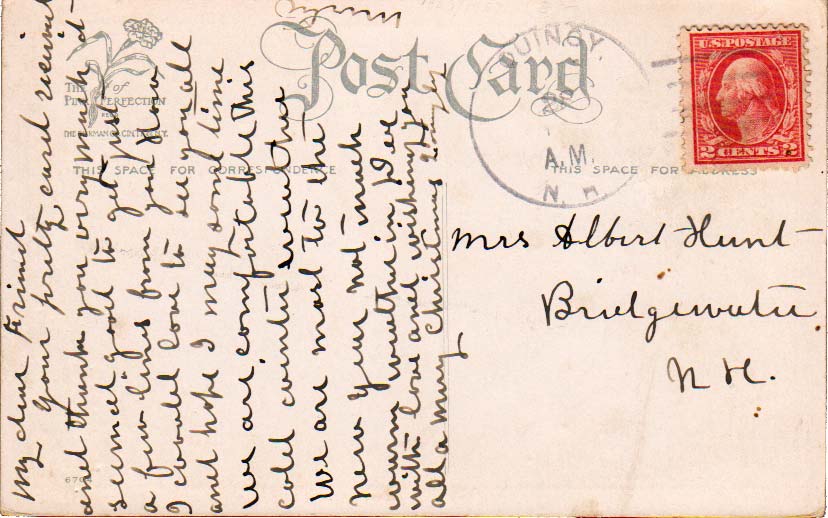 Post Card
The Pink of Perfection
THIS SPACE FOR CORRESPONDENCE
THIS SPACE FOR ADDRESS
QUINBY,
A.M.
N. H.
U.S. POSTAGE
2 CENTS 2
Mrs Albert Hunt
Bridgewater
N H.
My dear Friend
Your pretty card receivd
and thank you very much it
seemed good to get just
a few lines from you how
I would love to see you all
and hope I may some time
we are comfortable this
cold winter weather
We are most to the
New Year not much
warm weather in Dec
with love and wishing you
all a Mery Christmas